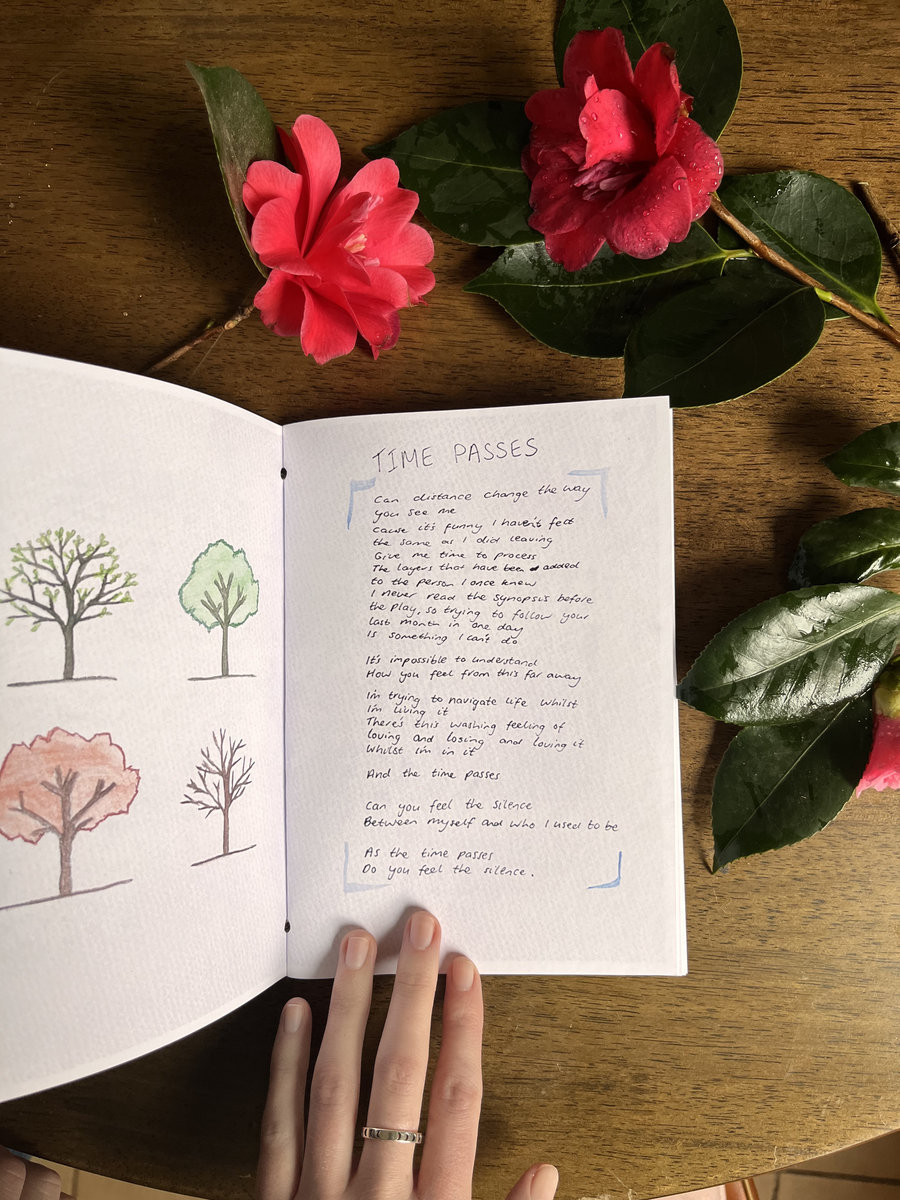 TIME PASSES
Can distance change the way
you see me
cause it's funny I haven't felt
the same as I did leaving
Give me time to process
The layers that have been added
to the person I once knew
I never read the synopsis before
the play, so trying to follow your
last month in one day
Is something I can't do
It's impossible to understand
How you feel from this far away
I'm trying to navigate life whilst
I'm living it
There's this washing feeling of
loving and losing and loving it
Whilst I'm in it
And the time passes
Can you feel the silence
Between myself and who I used to be
As the time passes
Do you feel the silence.